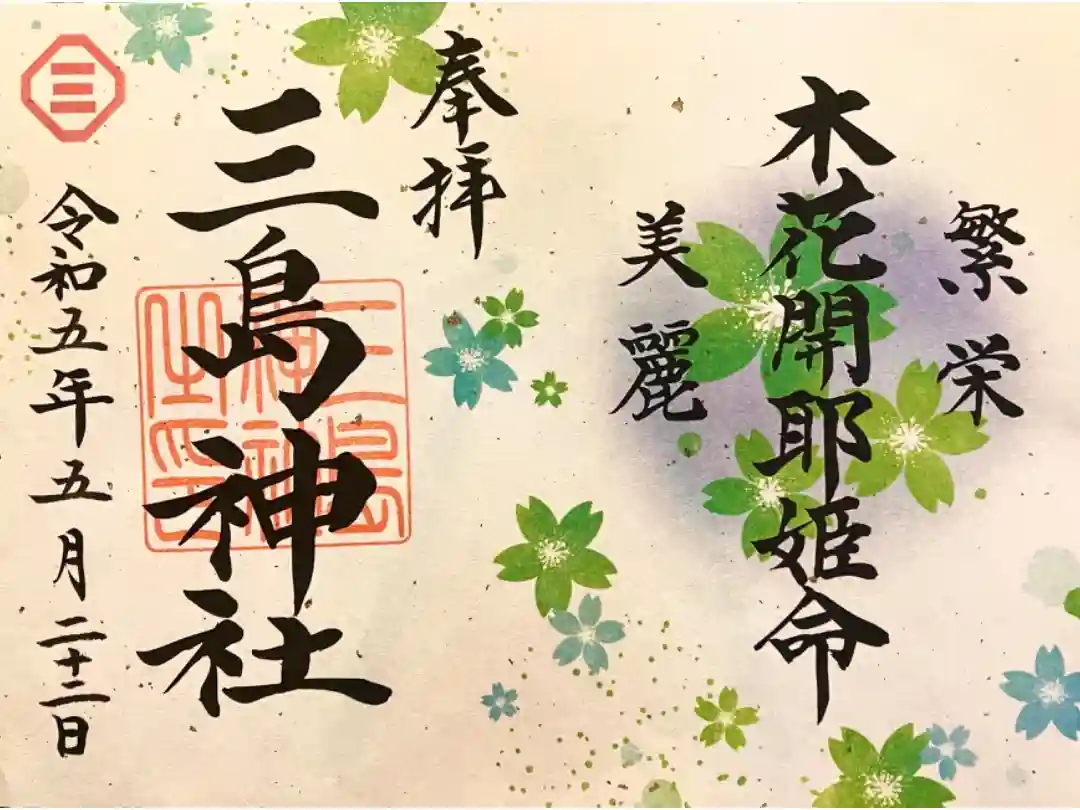 繁栄
木花開耶姫命
美麗
奉拝
三島神社
令和五年五月二十二日
三島神社之印
三